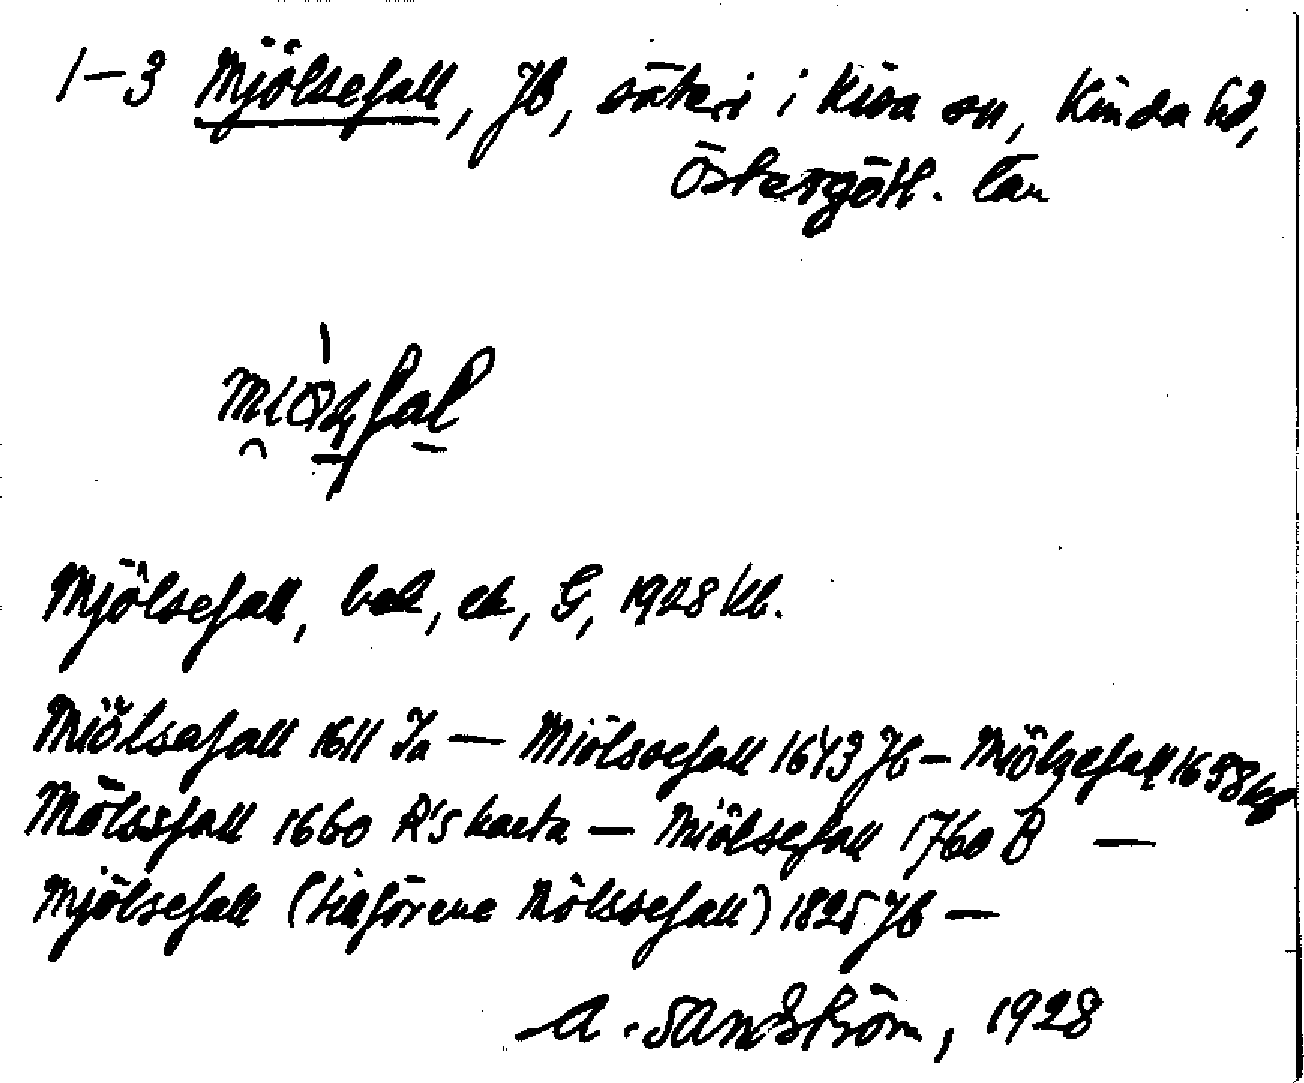 1–3 Mjölsefall, Jb, säteri i Kisa sn, Kinda hd,
Östergötl. län
Mjölsefall, bok, ek, G, 1928 kb.
Miölsafall 1611 Ja — Miölssefall 1643 Jb – Miölsefall 1658 kb
Mölssfall 1660 R's karta — Miölsefall 1760 B —
Mjölsefall (tillförene Mölssefall) 1825 Jb —
A. Sandström, 1928